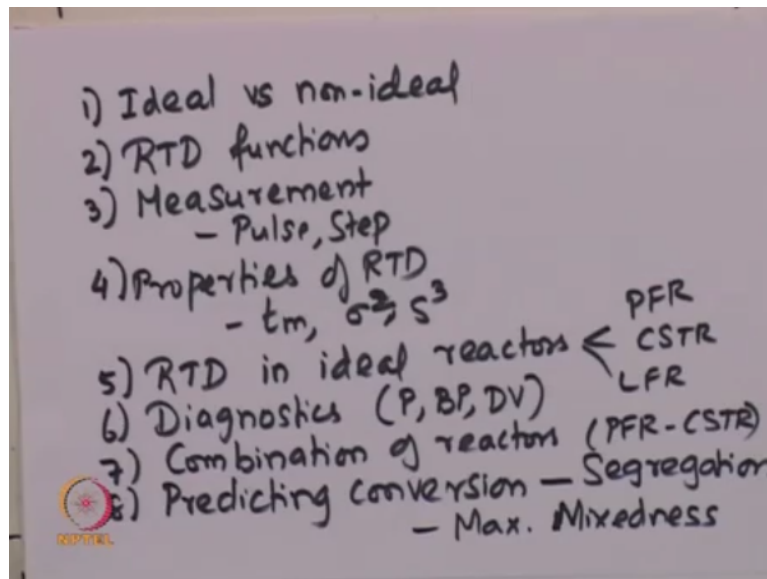 1) Ideal vs non-ideal
2) RTD functions
3) Measurement
- Pulse, Step
4) Properties of RTD
- tm, σ², s³
5) RTD in ideal reactors < PFR CSTR LFR
6) Diagnostics (P, BP, DV)
7) Combination of reactors (PFR-CSTR)
8) Predicting conversion - Segregation
- Max. Mixedness
NPTEL